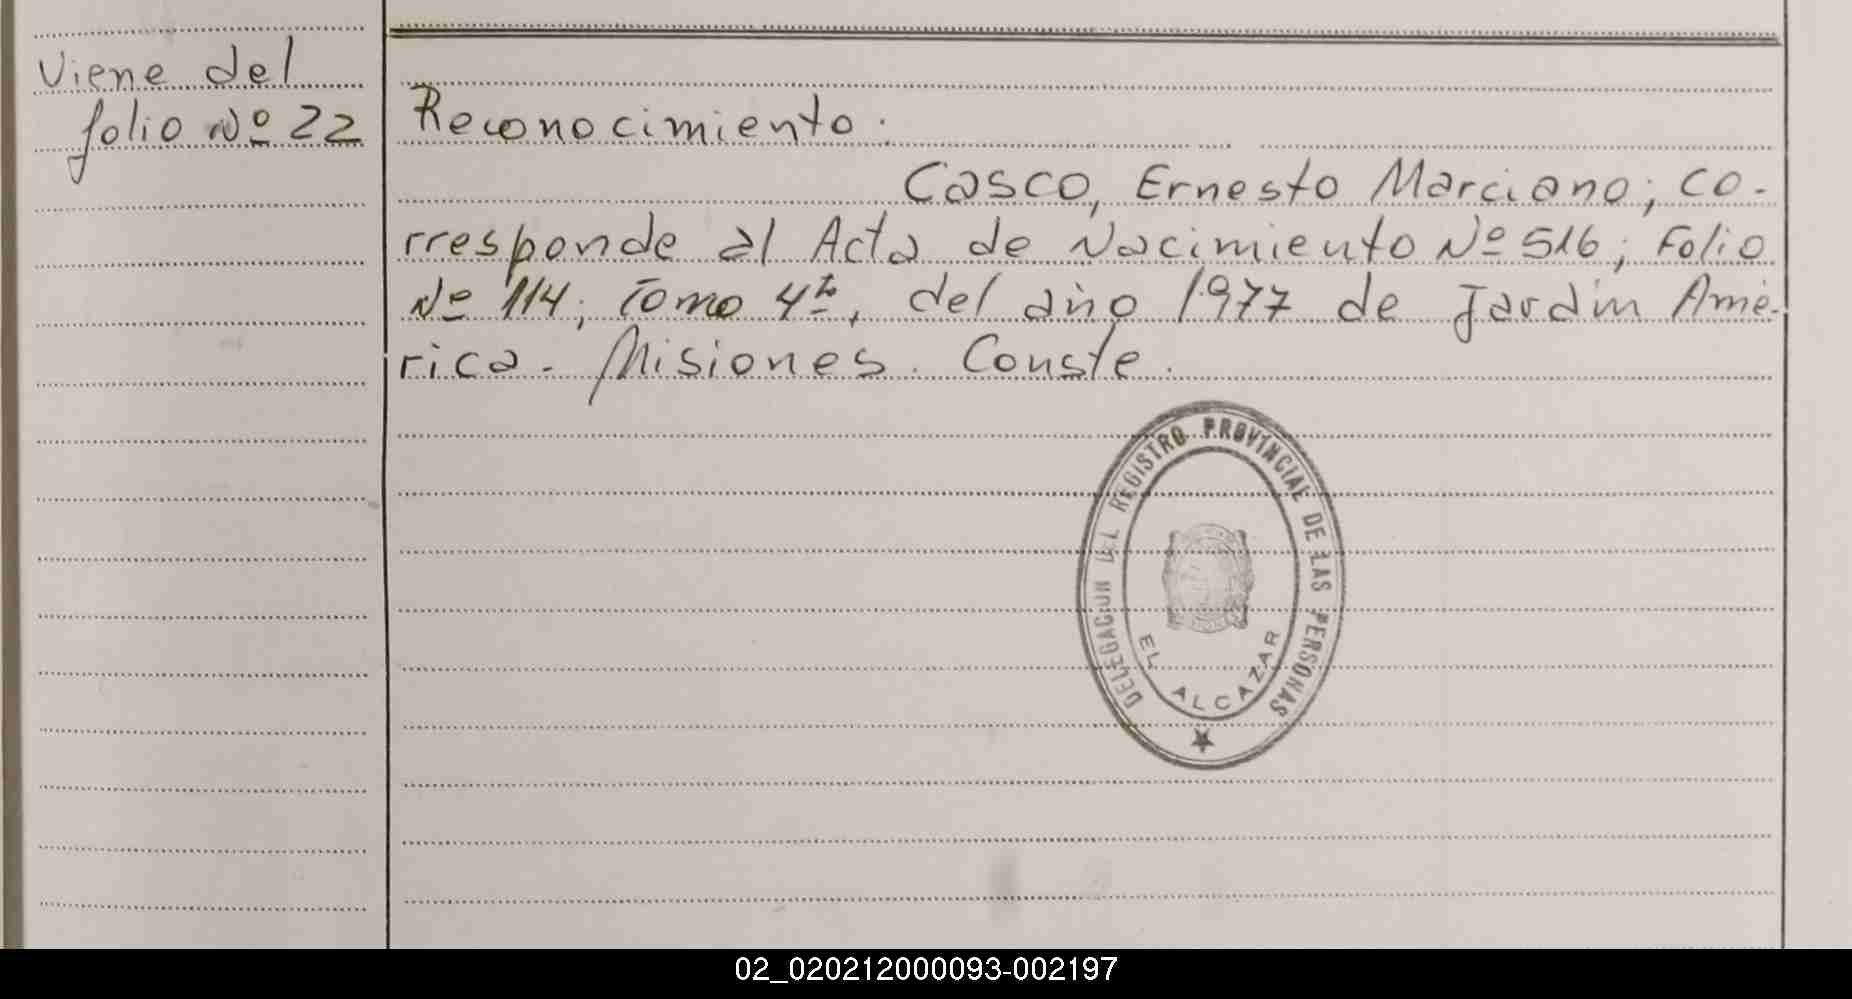 Viene del
folio Nº 22
Reconocimiento.
Casco, Ernesto Marciano; co-
rresponde al Acta de Nacimiento Nº 516; Folio
Nº 114; Tomo 4º, del año 1977 de Jardín Amé-
rica - Misiones. Conste.
DELEGACION DEL REGISTRO PROVINCIAL DE LAS PERSONAS
EL ALCAZAR
02_020212000093-002197